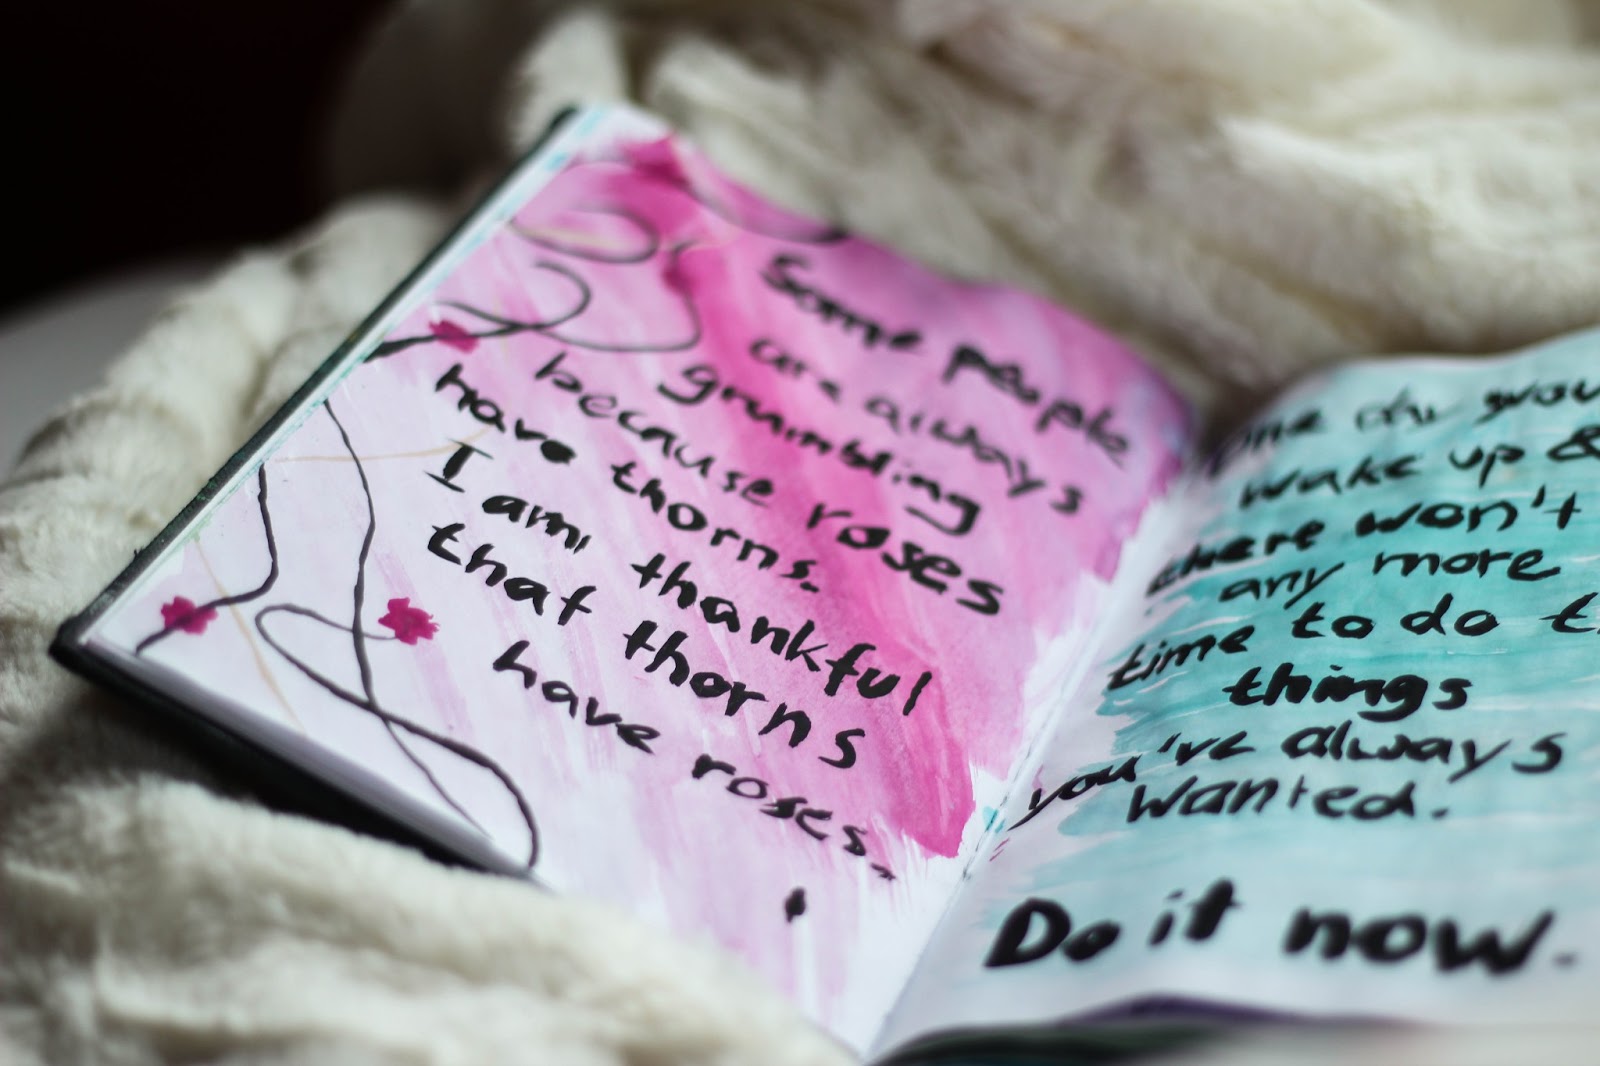 Some people
are always
grumbling
because roses
have thorns.
I am thankful
that thorns
have roses.
One day you
wake up &
there won't
any more
time to do t
things
you've always
wanted.
Do it now.